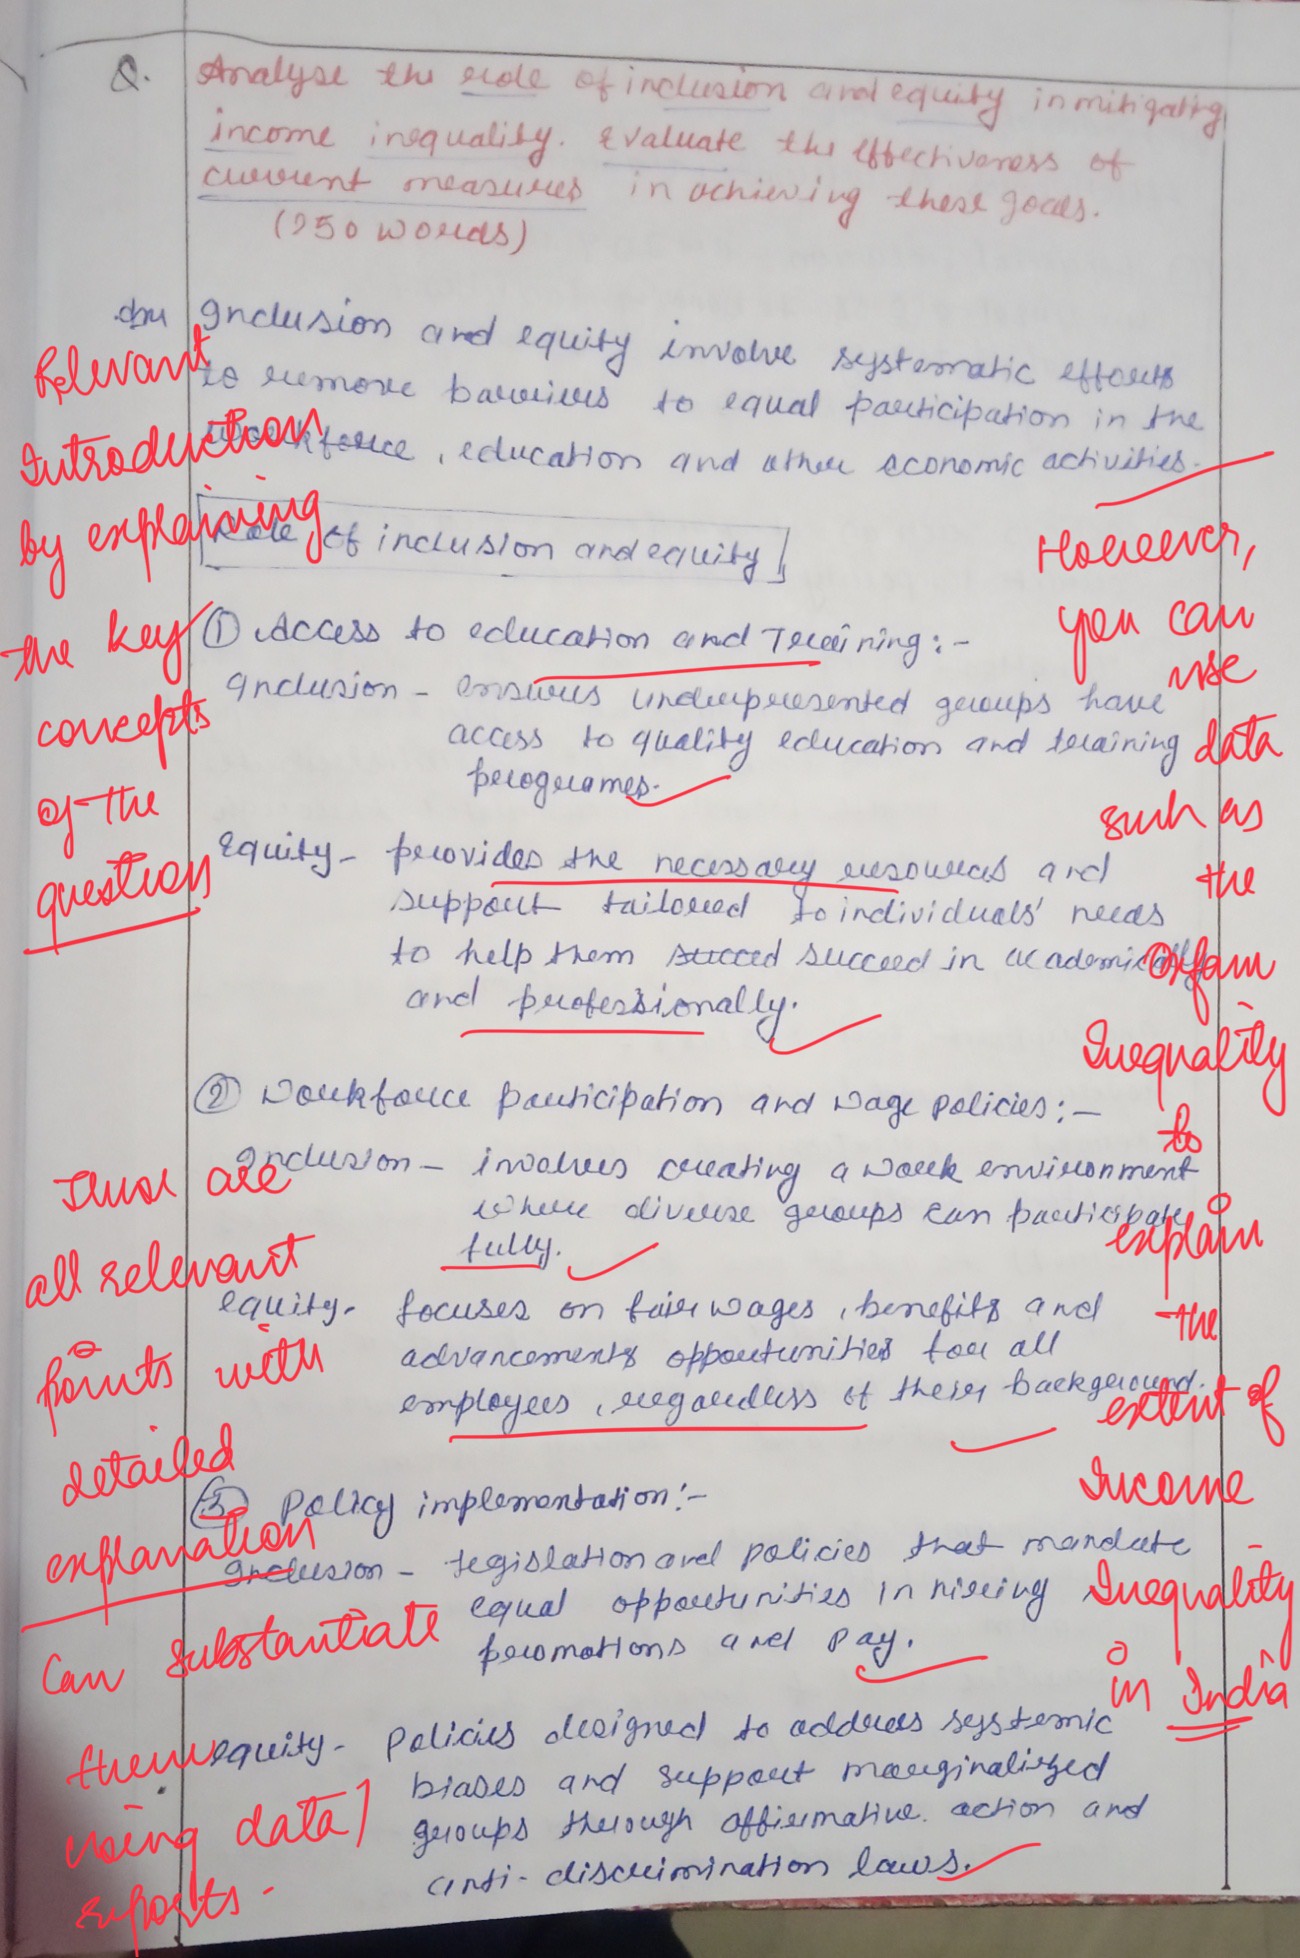 Q. Analyse the role of inclusion and equity in mitigating
income inequality. Evaluate the effectiveness of
current measures in achieving these goals.
(250 words)
Inclusion and equity involve systematic efforts
to remove barriers to equal participation in the
workforce, education and other economic activities.
Role of inclusion and equity
① Access to education and Training:-
Inclusion - ensures underpresented groups have
access to quality education and training
programes.
Equity - provides the necessary resources and
support tailored to individuals' needs
to help them succed succeed in academically
and professionally.
② Workforce participation and wage policies:-
Inclusion - involves creating a work environment
where diverse groups can participate
fully.
equity - focuses on fair wages, benefits and
advancements opportunities for all
employees, regardless of their background.
③ Policy implementation:-
Inclusion - legislation and policies that mandate
equal opportunities in hiring
promotions and pay.
equity - Policies designed to address systemic
biases and support marginalized
groups through affirmative action and
anti-discrimination laws.
Relevant
Introduction
by explaining
the key
concepts
of the
question
These are
all relevant
points with
detailed
explanation
Can substantiate
them
using data/
reports.
However,
you can
use
data
such as
the
Oxfam
Inequality
to
explain
the
extent of
Income
Inequality
in India